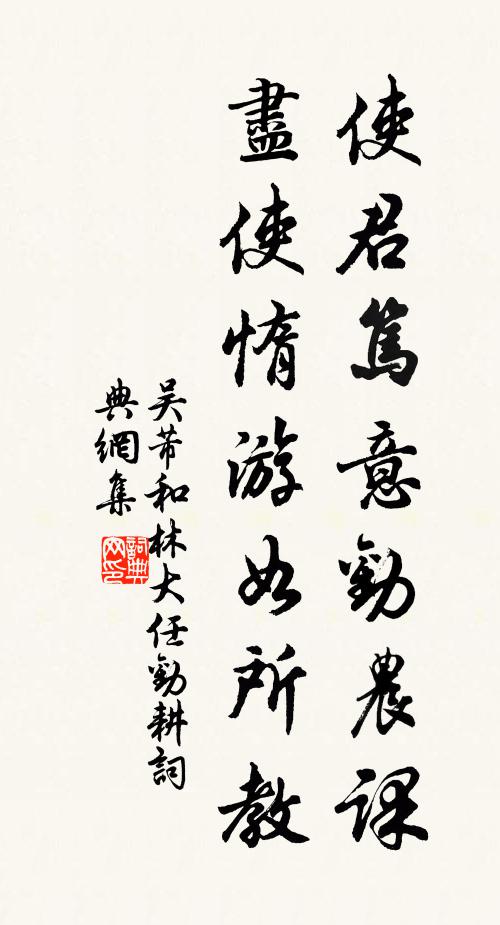 使君篤意勸農課
盡使惰游如所教
吴芾和林大任勸耕詞
典網集
詞典網印